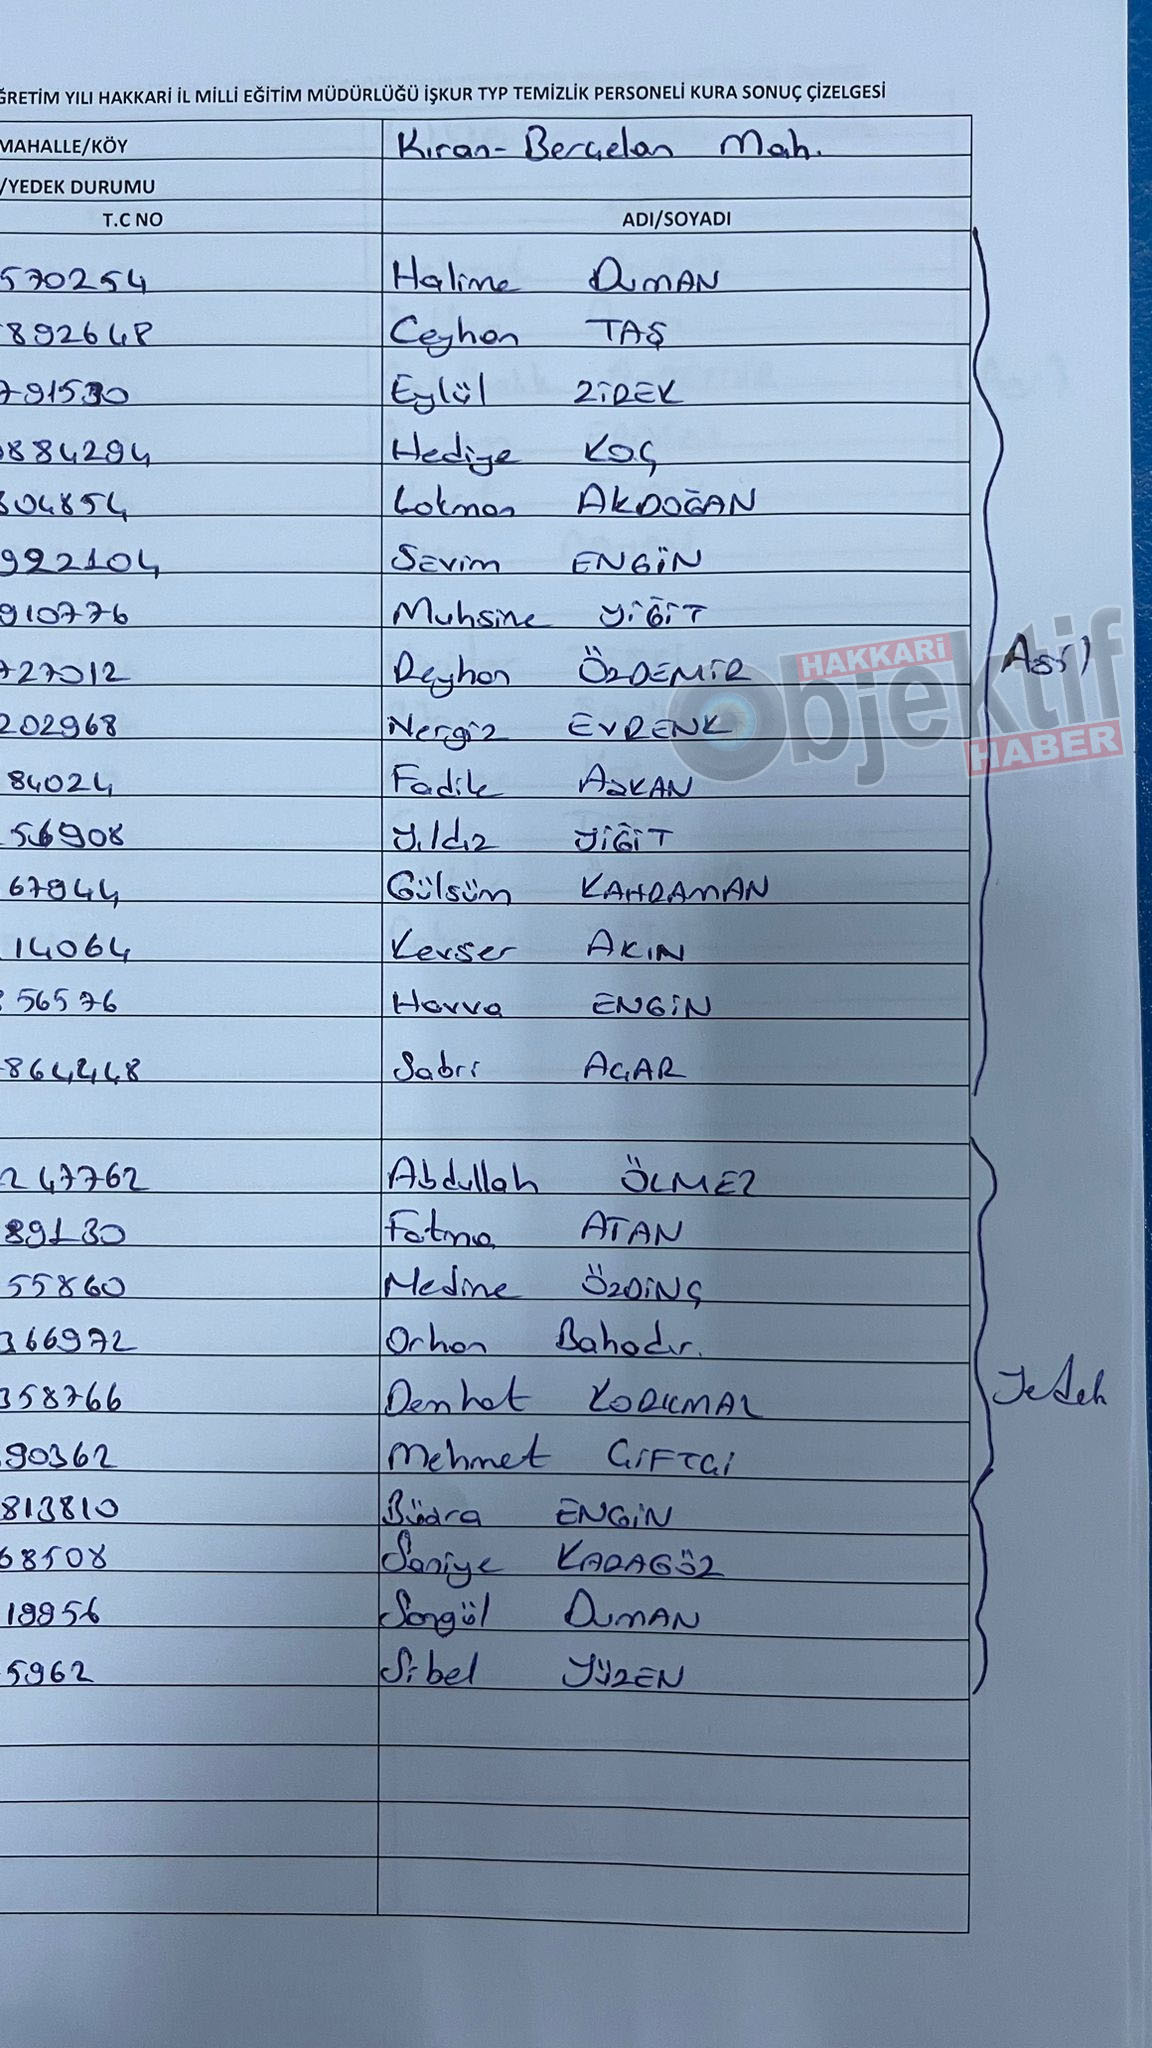 ĞRETİM YILI HAKKARİ İL MİLLİ EĞİTİM MÜDÜRLÜĞÜ İŞKUR TYP TEMİZLİK PERSONELİ KURA SONUÇ ÇİZELGESİ
MAHALLE/KÖY Kıran-Berçelan Mah.
/YEDEK DURUMU
T.C NO ADI/SOYADI
570254 Halime DUMAN
892648 Ceyhan TAŞ
791530 Eylül ZİREK
884294 Hediye KOÇ
304854 Lokman AKDOĞAN
922104 Sevim ENGİN
910776 Muhsine YİĞİT
727012 Reyhan ÖZDEMİR
202968 Nergiz EVRENK
84024 Fadile AZKAN
56908 Yıldız YİĞİT
67944 Gülsüm KAHRAMAN
14064 Kevser AKIN
56576 Havva ENGİN
864248 Sabri ACAR
Asil
HAKKARİ Objektif HABER
247762 Abdullah ÖLMEZ
89130 Fatma ATAN
55860 Medine ÖZDİNÇ
366972 Orhan Bahadır.
358766 Demhat KORKMAZ
90362 Mehmet ÇİFTÇİ
813810 Büşra ENGİN
68508 Saniye KARAGÖZ
19956 Songül DUMAN
5962 Sibel YÜZEN
Yedek